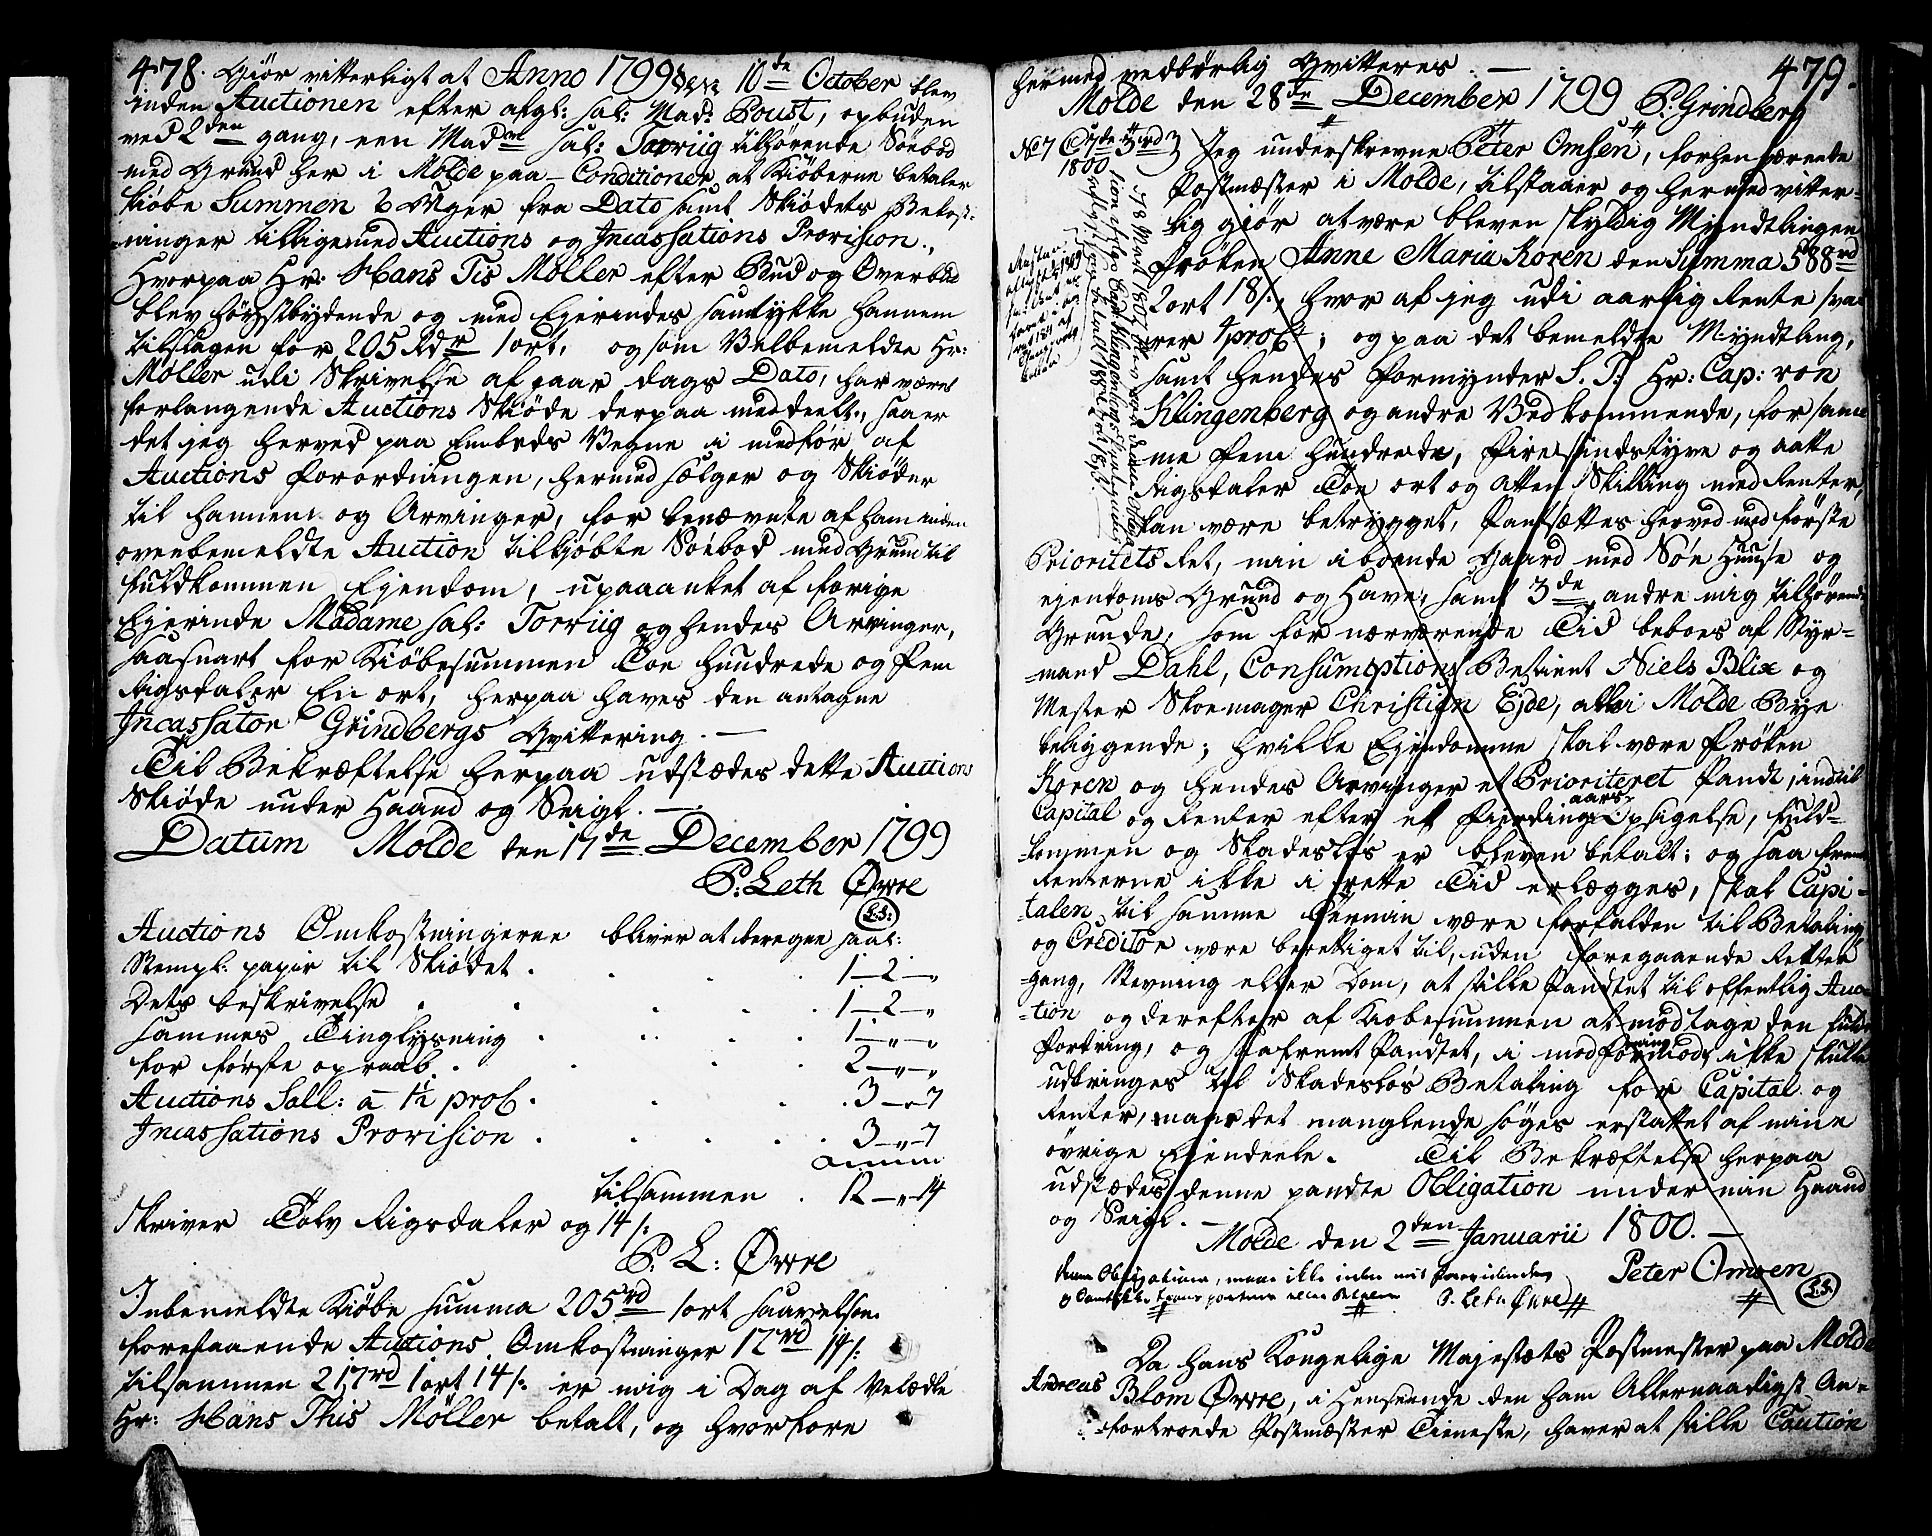 478. Giør vitterligt at Anno 1799 den 10de October blev
inden Auctionen efter afgl: sal: Mad: Poust, opbuden
ved 2den gang, een Madme sal: Torriig tilhørende Søebod
med Grund her i Molde paa Conditioner at Kiøberne betaler
Kiøbe Summen 6 Uger fra Dato samt Skiødets Bekost-
ninger tilligemed Auctions og Incassations Provision.,
Hvorpaa Hr: Hans Tis Møller efter Bud og Overbud
blev høystbydende og med Ejerindes samtykke hannem
tilslagen for 205 Rdr 1 ort, og som Velbemeldte Hr:
Møller udi Skrivelse af gaar dags Dato, har været
forlangende Auctions Skiøde derpaa meddeelt., saa er
det jeg herved paa Embeds Vegne i medfør af
Auctions Forordningen, hermed sælger og Skiøder
til hannem og Arvinger, for benævnte af ham inden
ovenbemeldte Auction tilkjøbte Søebod med Grund til
fuldkommen Ejendom, upaaanket af forige
Ejerinde Madame sal: Torriig og hendes Arvinger,
saasnart for Kiøbesummen Toe Hundrede og Fem
Rigsdaler En ort, herpaa haves den antagne
Incassator Grindbergs Qvittering. —
Til Bekræftelse herpaa udstædes dette Auctions
Skiøde under Haand og Seigl. —
Datum Molde den 17de December 1799
P: Leth Øwre
L.S.
Auctions Omkostningerne bliver at beregne saal:
Stempl: papir til Skiødet . . . 1—2—"
Dets beskrivelse . . . 1—2—"
Sammes Tinglysning . . . 1—"—"
for første opraab . . . 2—"—"
Auctions Sall: a 1½ proC . . . 3—"—7
Incassations Provision . . . 3—"—7
tilsammen . 12—"—14
skriver Tolv Rigsdaler og 14 s:
P: L: Øwre
Inbemeldte Kiøbe Summa 205rd 1 ort saavelsom
forestaaende Auctions Omkostninger 12rd 14 s:
tilsammen 217rd 1 ort 14 s: er mig i Dag af Velædle
Hr: Hans This Møller betalt, og hvorfore
479.
hermed vedbørlig Qvitteres. —
Molde den 28de December 1799 P: Grindberg
No 7
1800
Jeg underskrevne Peter Omsen, forhenværende
Postmæster i Molde, tilstaaer og hermed vitter-
lig giør at være bleven skyldig Myndtlingen
Frøken Anne Maria Koren den Summa 588rd
2 ort 18 s:, hvor af jeg udi aarlig Rente sva-
rer 4 proCt; og paa det bemeldte Myndtling,
samt hendes Formynder S. T: Hr: Cap: von
Klingenberg og andre Vedkommende, for sam-
me Fem Hundrede, Fire sindstyve og aatte
Rigsdaler Toe ort og Atten Skilling med Renter,
kan være betrygget, Pantsættes herved med første
Prioritets Ret, min iboende Gaard med Søe Huuse og
ejendoms Grund og Have, samt 3de andre mig tilhørende
Grunde, som for nærværende Tid beboes af Styr-
mand Dahl, Consumptions Betient Niels Blix og
Mester Skoemager Christian Ejde, alle i Molde Bye
beliggende; hvilke Ejendomme skal være Frøken
Koren og hendes Arvinger et Prioriteret Pandt, indtil
Capital og Renter efter et Fierding aars Opsigelse, fuld-
kommen og Skadesløs er bleven betalt; og saa fremt
Renterne ikke i rette Tid erlægges, skal Capi-
talen til samme Termin være forfalden til Betaling
og Creditor være berettiget til, uden foregaaende Retter-
gang, Stevning eller Dom, at stille Pandtet til offentlig Auc-
tion og derefter af Kiøbesummen at modtage den fulde
Fordring, og saafremt Pandtet, i mod formodning ikke skulle
udbringes til Skadesløs Betaling for Capital og
Renter, maae det manglende søges erstattet af mine
øvrige Ejendeele. Til Bekræftelse herpaa
udstædes denne pandte Obligation under min Haand
og Seigl. —
Molde den 2den Januarii 1800. —
Peter Omsen
L.S.
denne Obligation, maae ikke uden mit Forevidende
og Samtykke transporteres eller betales
P. Leth Øwre
Da Hans Kongelige Majestæts Postmester paa Molde
Andreas Blom Øwre, i Henseende den ham Allernaadigst An-
fortroede Postmæster Tieneste, haver at stille Caution